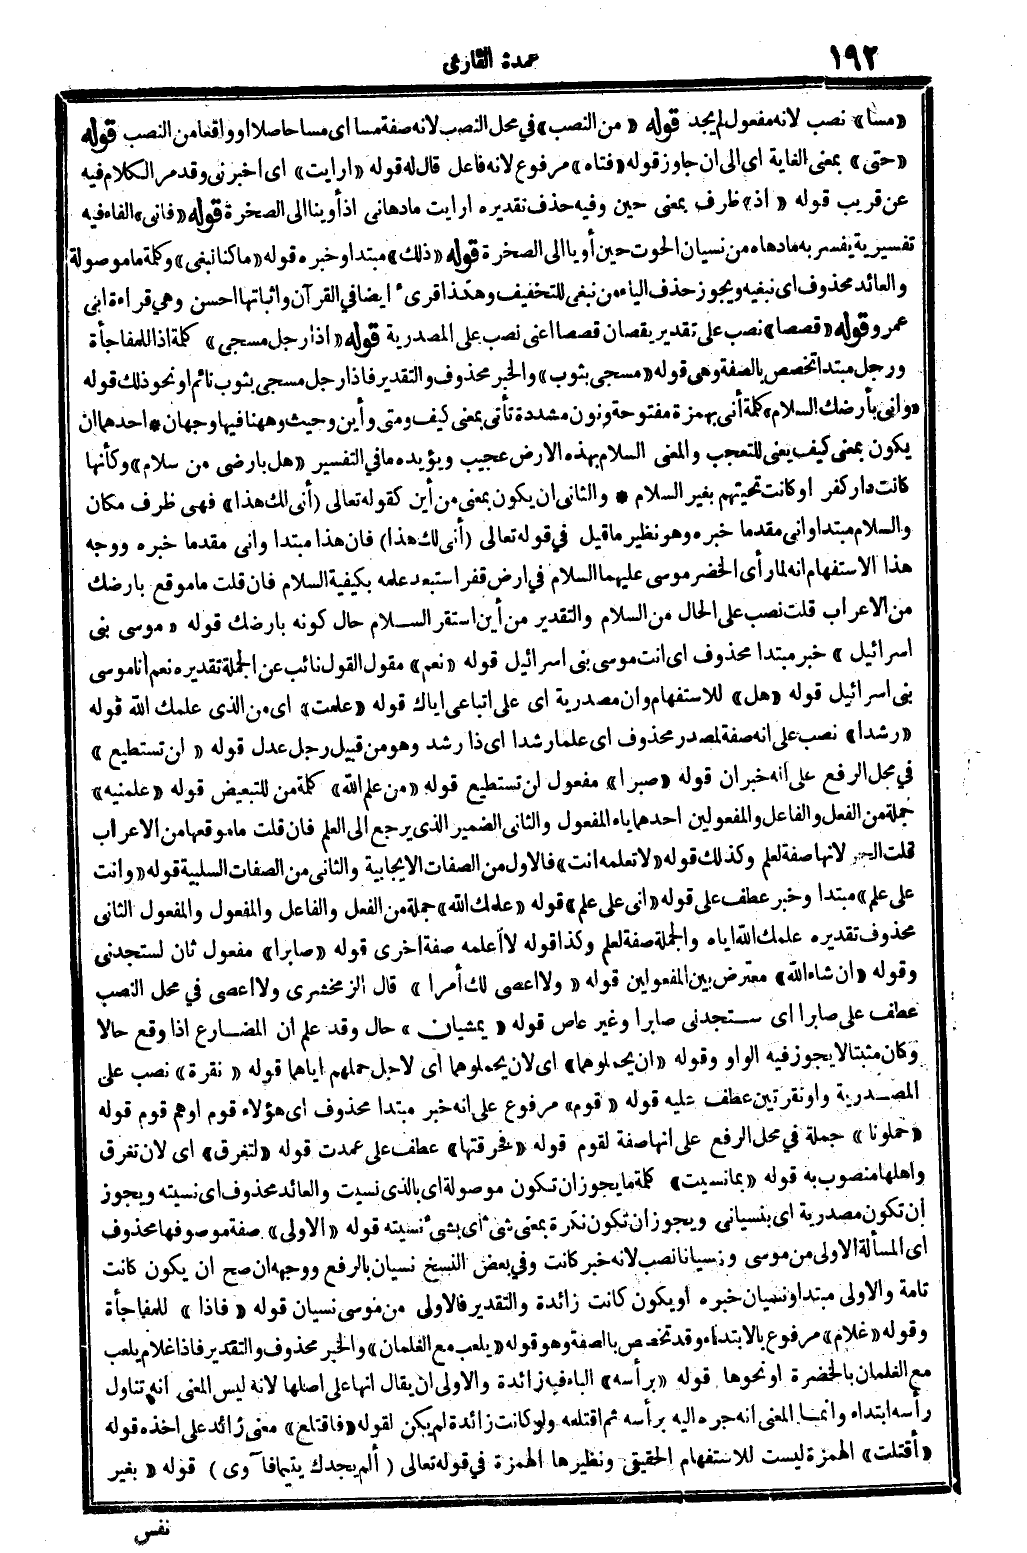 ١٩٢
عمدة القارئ
«مسا» نصب لانه مفعول لم يجد قوله « من النصب» في محل النصب لانه صفة مسا اى مسا حاصلا او واقعا من النصب قوله
«حتى» بمعنى الغاية اى الى ان جاوز قوله «فتاه» مرفوع لانه فاعل قال له قوله «ارايت» اى اخبرنى وقد مر الكلام فيه
عن قريب قوله « اذ» ظرف بمعنى حين وفيه حذف تقديره ارايت مادهانى اذ أوينا الى الصخرة قوله «فانى» الفاء فيه
تفسيرية يفسر به مادهاه من نسيان الحوت حين أويا الى الصخرة قوله «ذلك» مبتدا وخبره قوله «ما كنا نبغى» وكلمة ما موصولة
والعائد محذوف اى نبغيه ويجوز حذف الياء من نبغى للتخفيف وهكذا قرىء ايضا في القرآن واثباتها احسن وهي قراءة ابى
عمرو قوله «قصصا» نصب على تقدير يقصان قصصا اعنى نصب على المصدرية قوله «اذا رجل مسجى» كلمة اذا للمفاجأة
ورجل مبتدا تخصص بالصفة وهى قوله «مسجى بثوب» والخبر محذوف والتقدير فاذا رجل مسجى بثوب نائم او نحو ذلك قوله
«وانى بأرضك السلام» كلمة أنى بهمزة مفتوحة ونون مشددة تأتى بمعنى كيف ومتى وأين وحيث وههنا فيها وجهان * احدهما ان
يكون بمعنى كيف يعنى للتعجب والمعنى السلام بهذه الارض عجيب ويؤيده ما في التفسير «هل بارضى من سلام» وكأنها
كانت دار كفر او كانت تحيتهم بغير السلام * والثانى ان يكون بمعنى من أين كقوله تعالى (أنى لك هذا) فهى ظرف مكان
والسلام مبتدا وانى مقدما خبره وهو نظير ما قيل في قوله تعالى (أنى لك هذا) فان هذا مبتدا وانى مقدما خبره ووجه
هذا الاستفهام انه لما رأى الخضر موسى عليهما السلام في ارض قفر استبعد علمه بكيفية السلام فان قلت ما موقع بارضك
من الاعراب قلت نصب على الحال من السلام والتقدير من أين استقر السلام حال كونه بارضك قوله « موسى بنى
اسرائيل » خبر مبتدا محذوف اى انت موسى بنى اسرائيل قوله «نعم» مقول القول نائب عن الجملة تقديره نعم أنا موسى
بنى اسرائيل قوله «هل» للاستفهام وان مصدرية اى على اتباعى اياك قوله «علمت» اى من الذى علمك الله قوله
«رشدا» نصب على انه صفة لمصدر محذوف اى علما رشدا اى ذا رشد وهو من قبيل رجل عدل قوله « لن تستطيع »
في محل الرفع على انه خبر ان قوله «صبرا» مفعول لن تستطيع قوله «من علم الله» كلمة من للتبعيض قوله «علمنيه»
جملة من الفعل والفاعل والمفعولين احدهما ياء المفعول والثانى الضمير الذى يرجع الى العلم فان قلت ما موقعها من الاعراب
قلت الجر لانها صفة لعلم وكذلك قوله «لا تعلمه انت» فالاول من الصفات الايجابية والثانى من الصفات السلبية قوله «وانت
على علم» مبتدا وخبر عطف على قوله «انى على علم» قوله «علمك الله» جملة من الفعل والفاعل والمفعول والمفعول الثانى
محذوف تقديره علمك الله اياه والجملة صفة لعلم وكذا قوله لا أعلمه صفة اخرى قوله «صابرا» مفعول ثان لستجدنى
وقوله «ان شاء الله» معترض بين المفعولين قوله « ولا اعصى لك أمرا » قال الزمخشرى ولا اعصى في محل النصب
عطف على صابرا اى ستجدنى صابرا وغير عاص قوله « يمشيان » حال وقد علم ان المضارع اذا وقع حالا
وكان مثبتا لا يجوز فيه الواو وقوله «ان يحملوهما» اى لان يحملوهما اى لاجل حملهم اياهما قوله « نقرة» نصب على
المصدرية واو نقرتين عطف عليه قوله « قوم» مرفوع على انه خبر مبتدا محذوف اى هؤلاء قوم اوهم قوم قوله
«حملونا » جملة في محل الرفع على انها صفة لقوم قوله «فخرقتها» عطف على عمدت قوله «لتغرق» اى لان تغرق
واهلها منصوب به قوله «بما نسيت» كلمة ما يجوز ان تكون موصولة اى بالذى نسيت والعائد محذوف اى نسيته ويجوز
ان تكون مصدرية اى بنسيانى ويجوز ان تكون نكرة بمعنى شىء اى بشىء نسيته قوله «الاولى» صفة موصوفها محذوف
اى المسألة الاولى من موسى ونسيانا نصب لانه خبر كانت وفي بعض النسخ نسيان بالرفع ووجهه ان صح ان يكون كانت
تامة والاولى مبتدا ونسيان خبره او يكون كانت زائدة والتقدير فالاولى من موسى نسيان قوله « فاذا » للمفاجأة
وقوله «غلام» مرفوع بالابتداء وقد تخصص بالصفة وهو قوله «يلعب مع الغلمان» والخبر محذوف والتقدير فاذا غلام يلعب
مع الغلمان بالحضرة او نحوها قوله «برأسه» الباء فيه زائدة والاولى ان يقال انها على اصلها لانه ليس المعنى انه تناول
رأسه ابتداء وانما المعنى انه جره اليه برأسه ثم اقتلعه ولو كانت زائدة لم يكن لقوله «فاقتلع» معنى زائد على اخذه قوله
«أقتلت» الهمزة ليست للاستفهام الحقيقى ونظيرها الهمزة في قوله تعالى ( ألم يجدك يتيما فآوى ) قوله « بغير
نفس